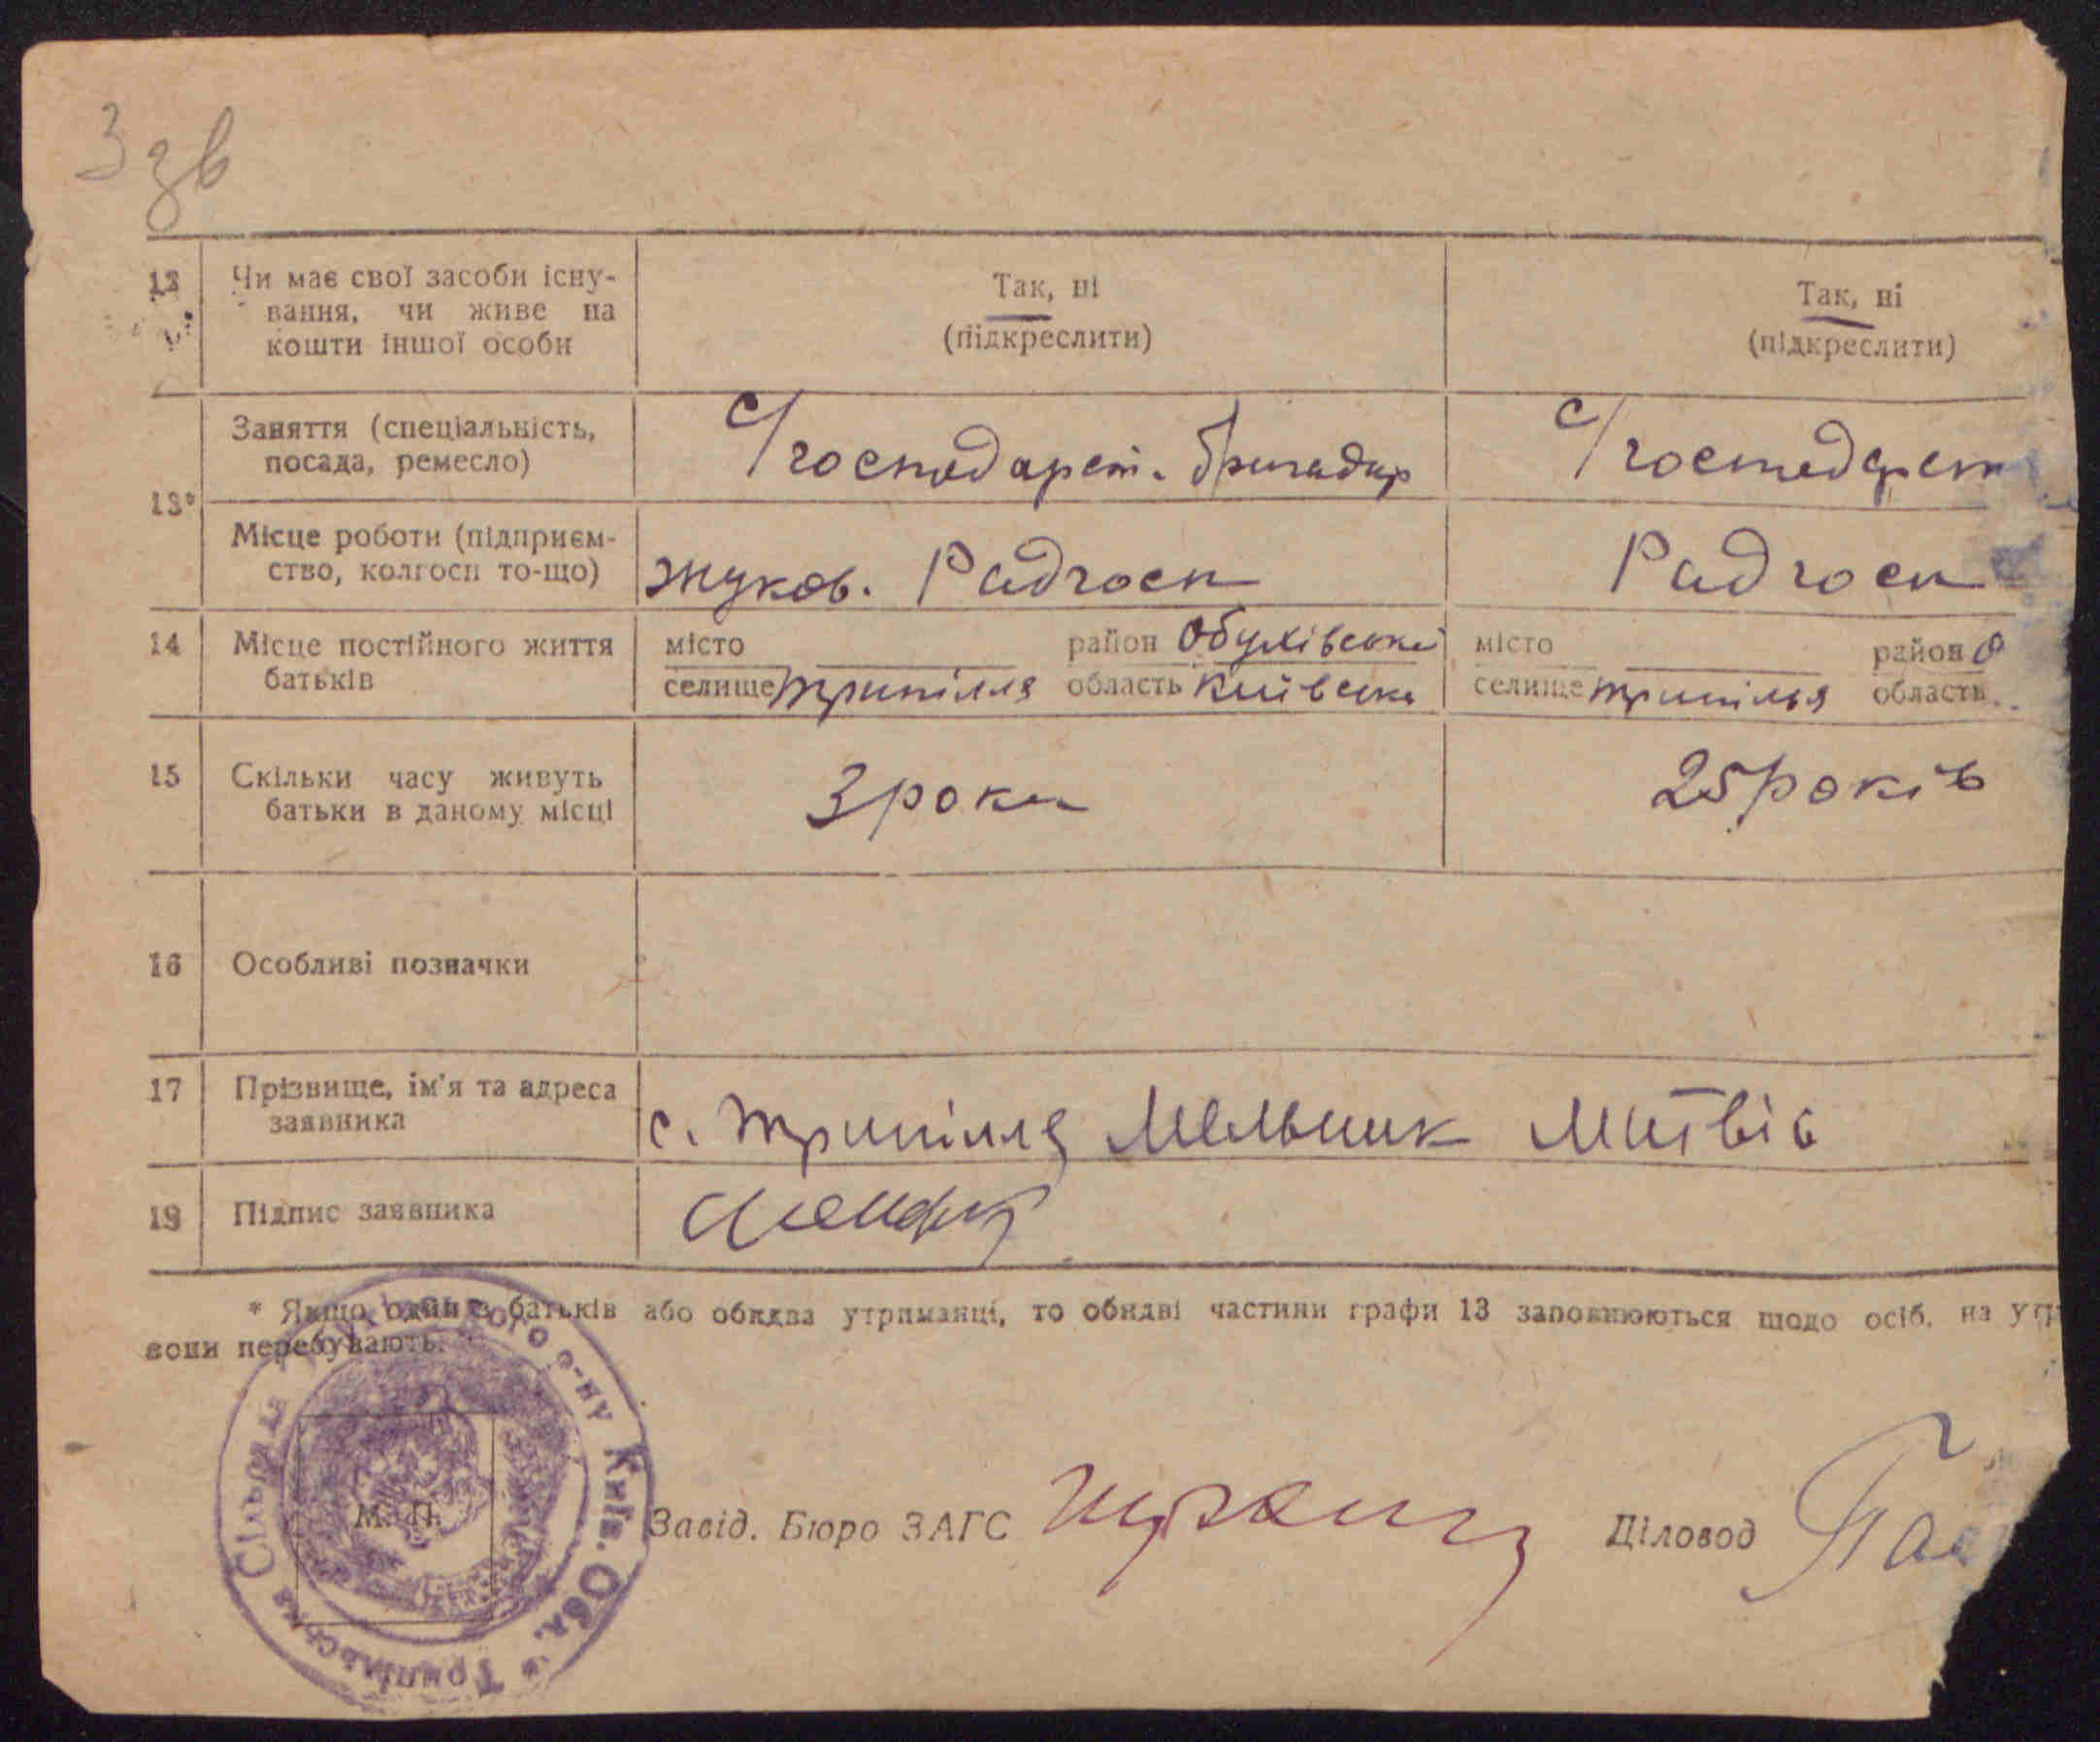 3 зв
12 Чи має свої засоби існу- Так, ні Так, ні
вання, чи живе на (підкреслити) (підкреслити)
кошти іншої особи
13* Заняття (спеціальність, с/господарст. бригадир с/господарст
посада, ремесло)
Місце роботи (підприєм- Жуков. Радгосп Радгосп
ство, колгосп то-що)
14 Місце постійного життя місто район Обухівський місто район О
батьків селище Трипілля область Київська селище Трипілья область
15 Скільки часу живуть 3 роки 25 років
батьки в даному місці
16 Особливі позначки
17 Прізвище, ім'я та адреса с. Трипілля Мельник Митвів
заявника
19 Підпис заявника
* Якщо один з батьків або обидва утриманці, то обидві частини графи 13 заповнюються щодо осіб, на утр
вони перебувають.
Трипільська Сільрада р-ну Київ. Обл.
М. П.
Завід. Бюро ЗАГС Діловод